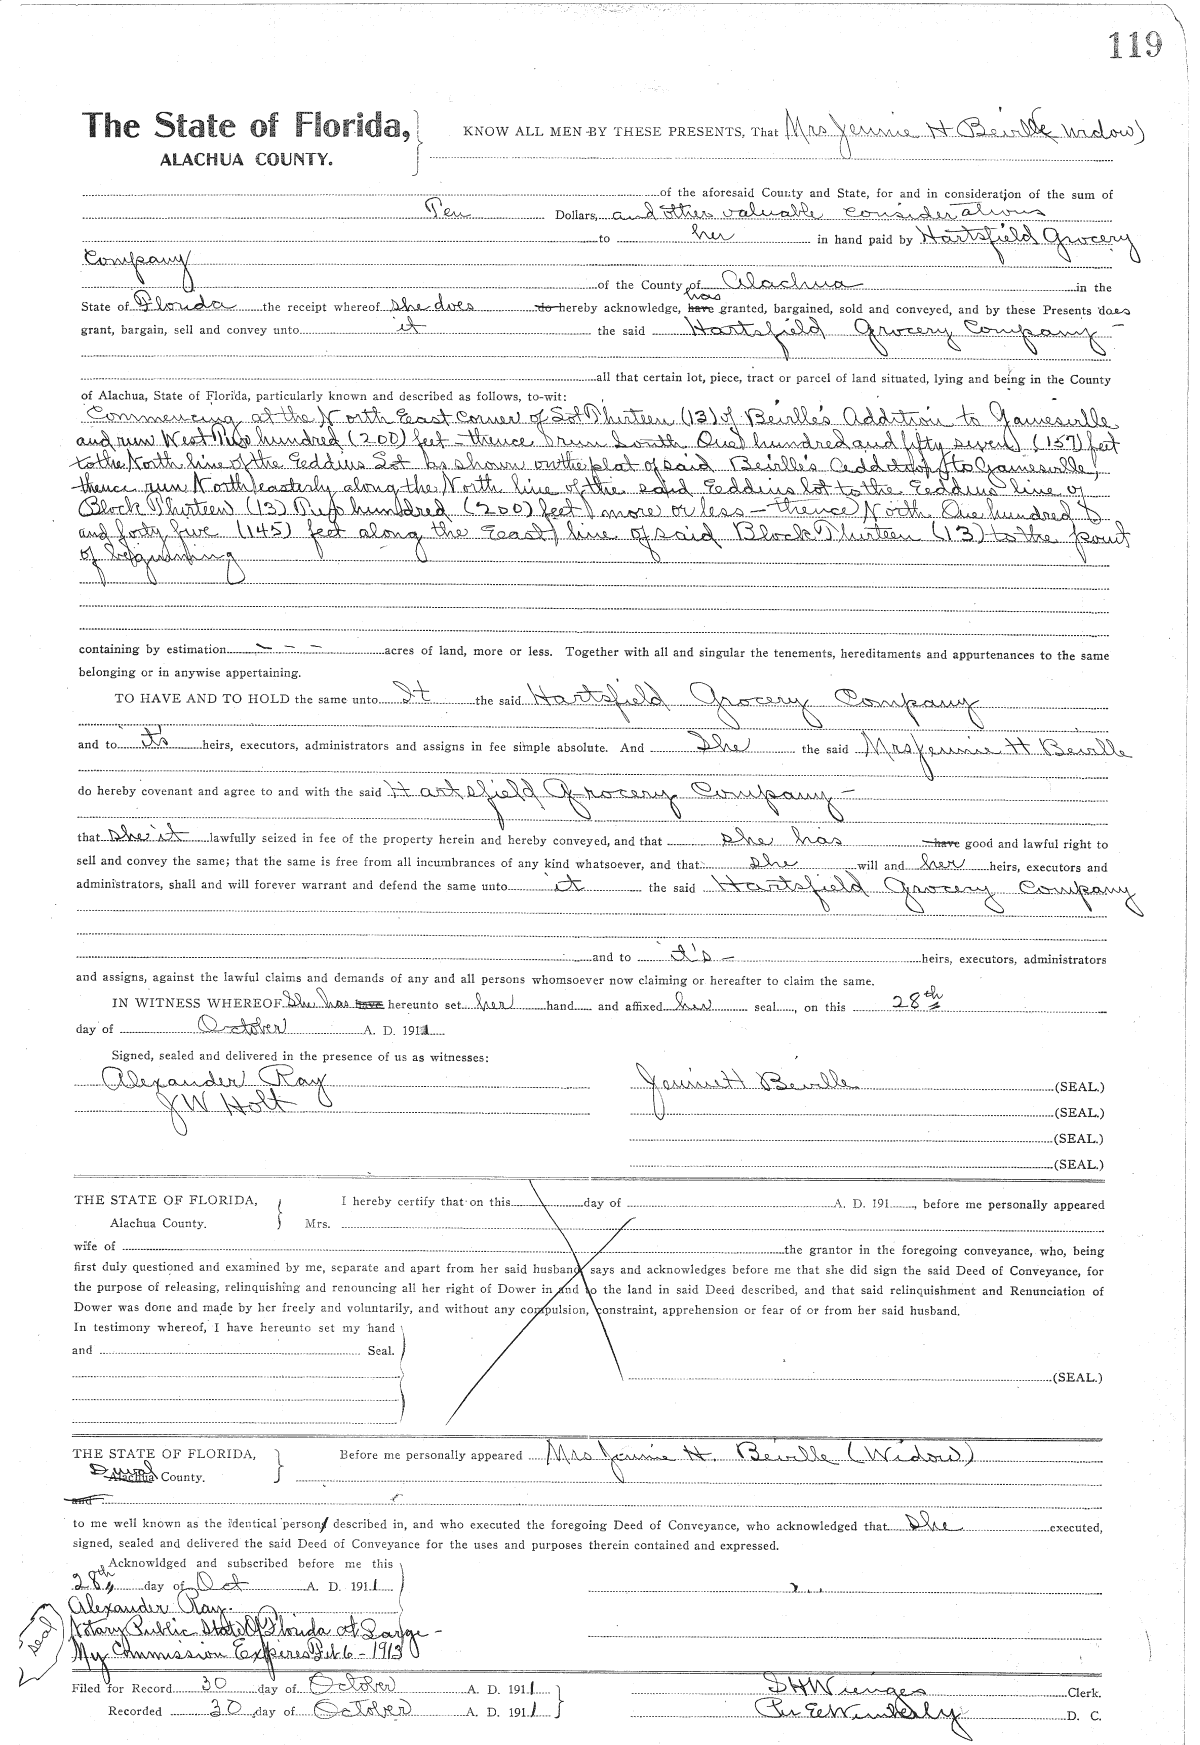 119
The State of Florida,
ALACHUA COUNTY.
KNOW ALL MEN BY THESE PRESENTS, That Mrs Jennie H Beville widow)
of the aforesaid County and State, for and in consideration of the sum of
Ten Dollars, and other valuable considerations
to her in hand paid by Hartsfield Grocery
Company
of the County of Alachua in the
State of Florida the receipt whereof she does do hereby acknowledge, has have granted, bargained, sold and conveyed, and by these Presents does
grant, bargain, sell and convey unto it the said Hartsfield Grocery Company –
all that certain lot, piece, tract or parcel of land situated, lying and being in the County
of Alachua, State of Florida, particularly known and described as follows, to-wit:
Commencing at the North East Corner of Lot Thirteen (13) of Beville's Addition to Gainesville
and run West Two hundred (200) feet – thence run South One hundred and fifty seven (157) feet
to the North line of the Eddins Lot as shown on the plat of said Beville's Addition to Gainesville,
thence run North easterly along the North line of the said Eddins lot to the line of
Block Thirteen (13) Two hundred (200) feet more or less – thence North One hundred
and forty five (145) feet along the East line of said Block Thirteen (13) to the point
of beginning
containing by estimation – – – acres of land, more or less. Together with all and singular the tenements, hereditaments and appurtenances to the same
belonging or in anywise appertaining.
TO HAVE AND TO HOLD the same unto It the said Hartsfield Grocery Company
and to it's heirs, executors, administrators and assigns in fee simple absolute. And She the said Mrs Jennie H Beville
do hereby covenant and agree to and with the said Hartsfield Grocery Company –
that she it lawfully seized in fee of the property herein and hereby conveyed, and that she has have good and lawful right to
sell and convey the same; that the same is free from all incumbrances of any kind whatsoever, and that she will and her heirs, executors and
administrators, shall and will forever warrant and defend the same unto it the said Hartsfield Grocery Company
and to it's – heirs, executors, administrators
and assigns, against the lawful claims and demands of any and all persons whomsoever now claiming or hereafter to claim the same.
IN WITNESS WHEREOF She has have hereunto set her hand and affixed her seal, on this 28th
day of October A. D. 1911
Signed, sealed and delivered in the presence of us as witnesses:
Alexander Ray
J W Holt
Jennie H Beville (SEAL.)
(SEAL.)
(SEAL.)
(SEAL.)
THE STATE OF FLORIDA,
Alachua County.
I hereby certify that on this day of A. D. 191 , before me personally appeared
Mrs.
wife of the grantor in the foregoing conveyance, who, being
first duly questioned and examined by me, separate and apart from her said husband, says and acknowledges before me that she did sign the said Deed of Conveyance, for
the purpose of releasing, relinquishing and renouncing all her right of Dower in and to the land in said Deed described, and that said relinquishment and Renunciation of
Dower was done and made by her freely and voluntarily, and without any compulsion, constraint, apprehension or fear of or from her said husband.
In testimony whereof, I have hereunto set my hand
and Seal.
(SEAL.)
THE STATE OF FLORIDA,
Duval Alachua County.
Before me personally appeared Mrs Jennie H. Beville (Widow)
and
to me well known as the identical person described in, and who executed the foregoing Deed of Conveyance, who acknowledged that She executed,
signed, sealed and delivered the said Deed of Conveyance for the uses and purposes therein contained and expressed.
Acknowldged and subscribed before me this
28th day of Oct A. D. 1911
Alexander Ray.
Notary Public State Of Florida at Large –
My Commission Expires Feb 6 – 1913
seal
Filed for Record 30 day of October A. D. 1911
Recorded 30 day of October A. D. 1911
S H Wienges Clerk.
Per E E Wimberly D. C.